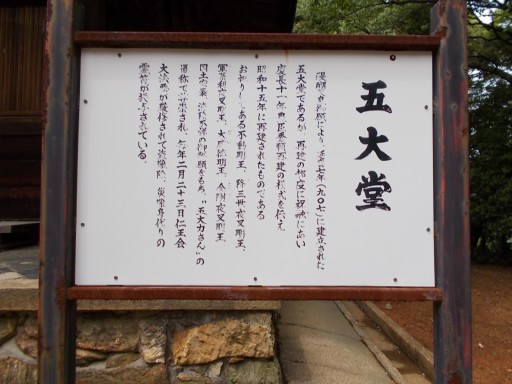 五大堂
醍醐天皇の御願により、延喜七年(九〇七)に建立された
五大堂であるが、再建の都度に祝融にあい
慶長十一年豊臣秀頼再建の様式を伝え
昭和十五年に再建されたものである
お祀りしてある不動明王、降三世夜叉明王、
軍荼利夜叉明王、大威徳明王、金剛夜叉明王、
国土安泰、の御祈願をもち、"五大力さん"の
通称で世に され、毎年二月二十三日仁王会
大法要が厳修されて盗難除、災難身代りの
霊符が授与されている。